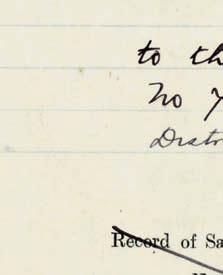 to th
No 7
Distr
Record of Sa